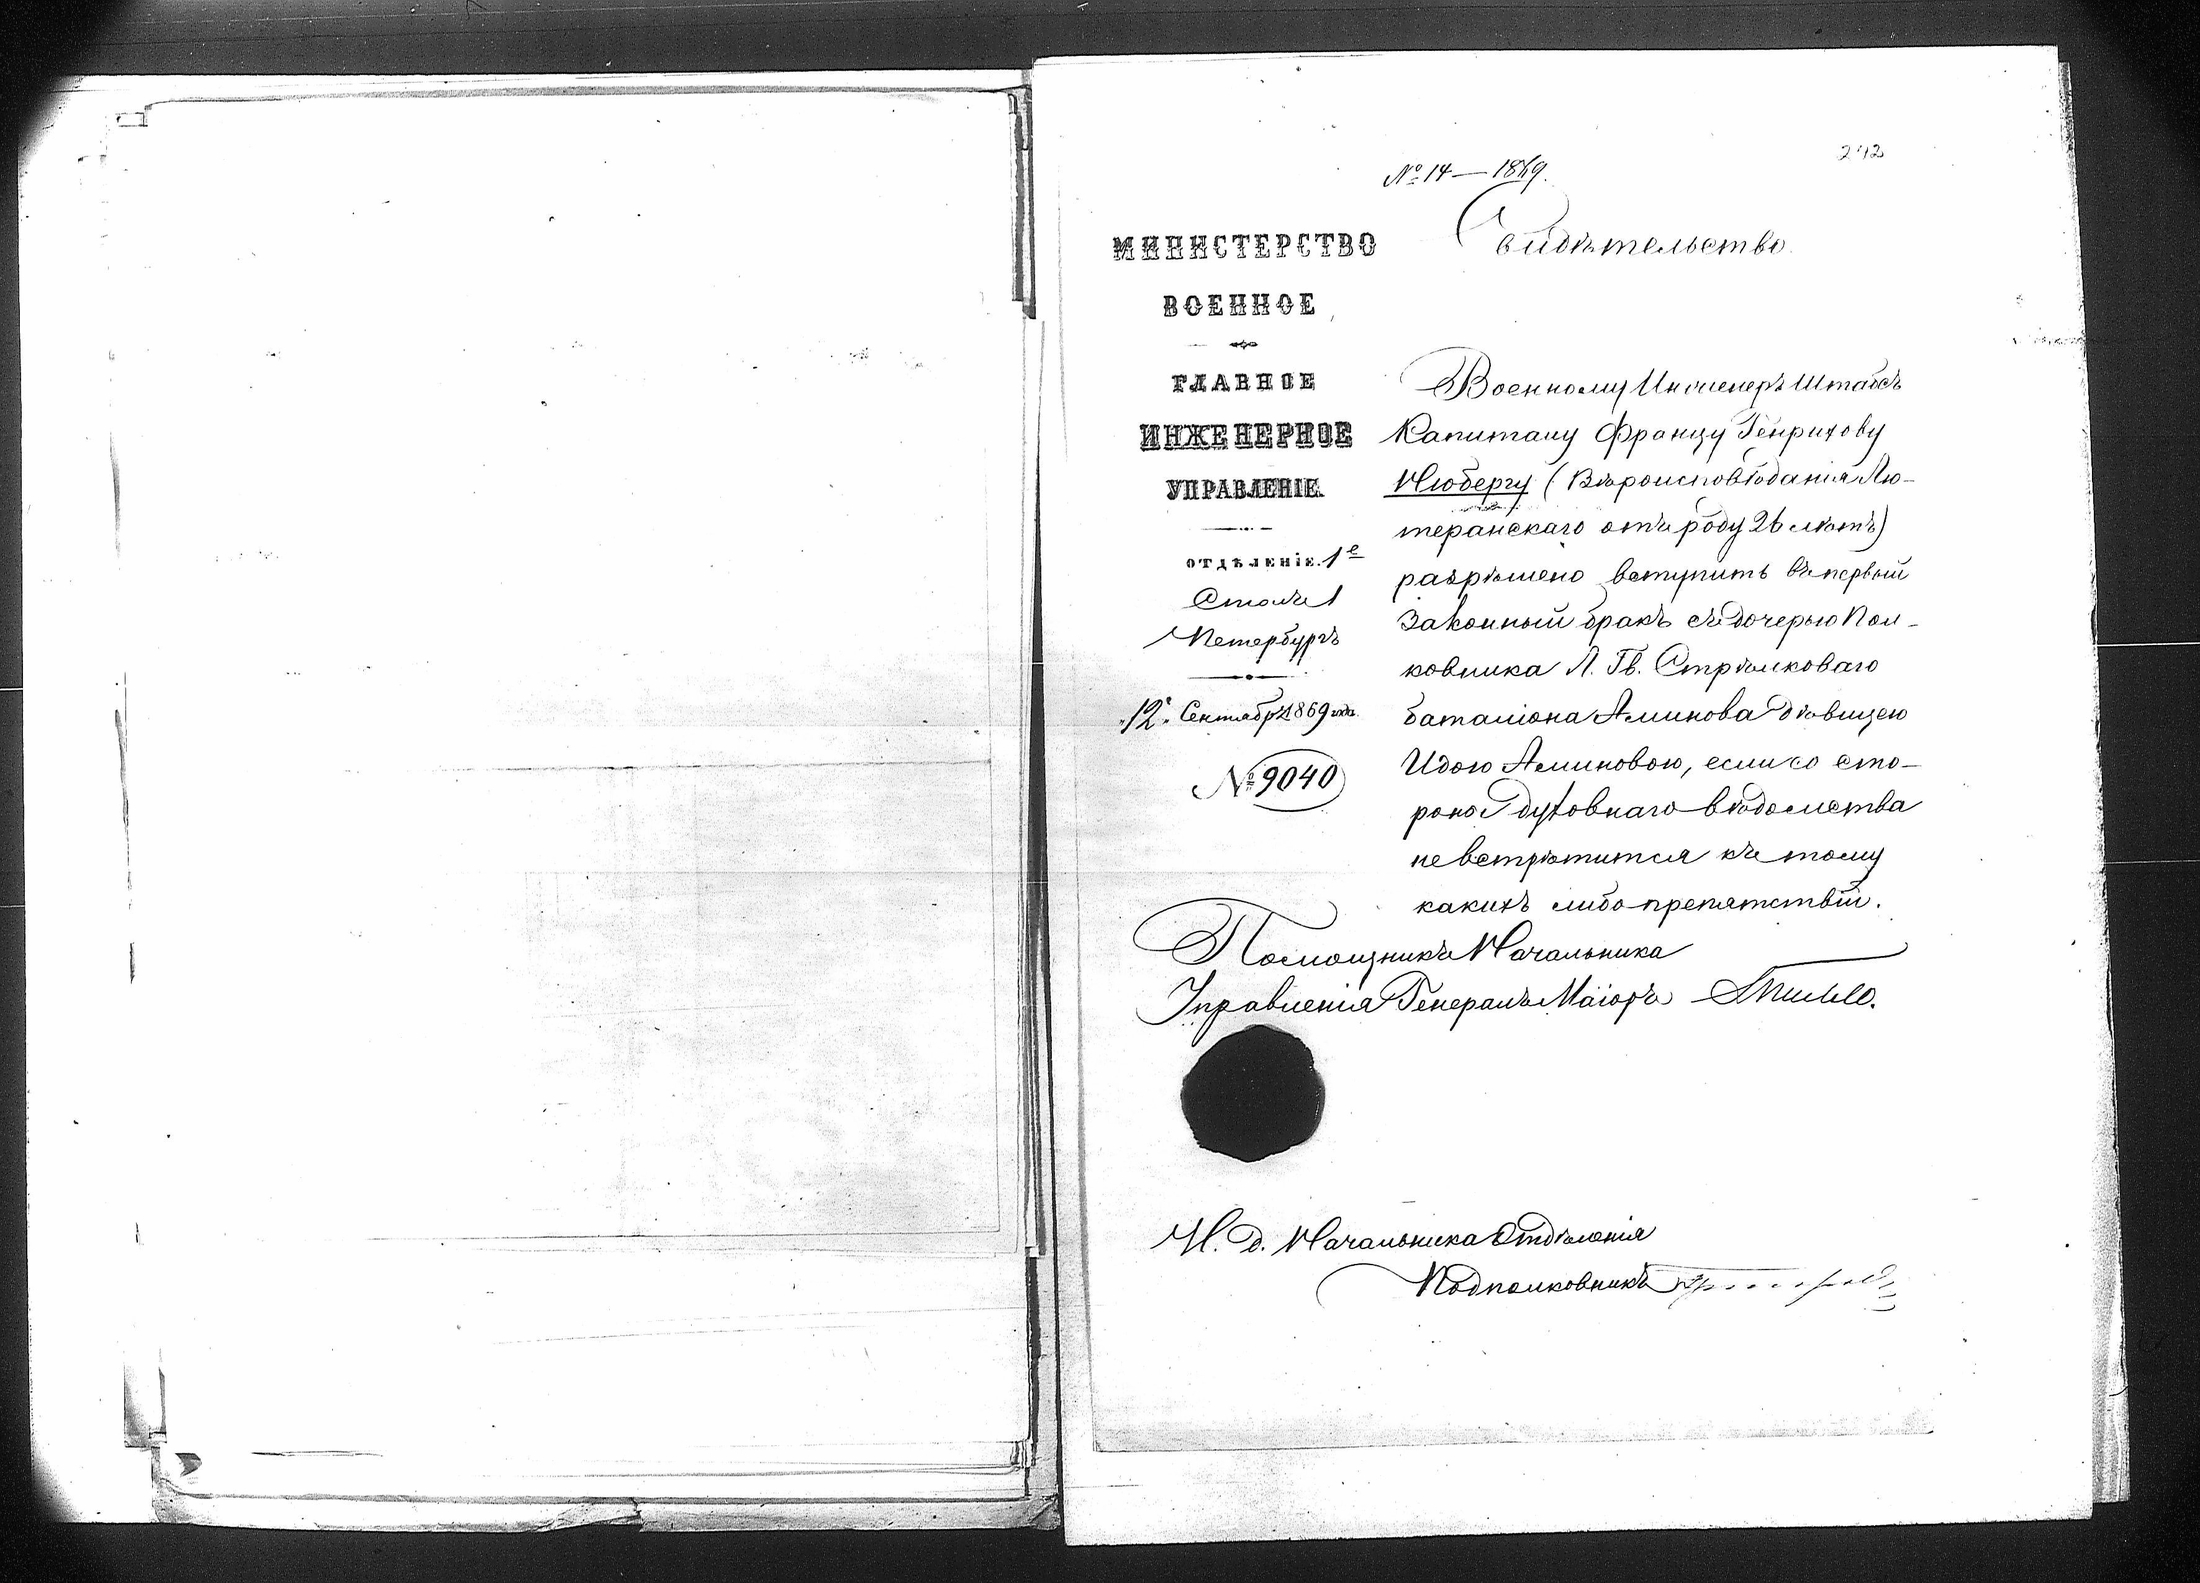 242
№ 14 — 1869.
Свидѣтельство.
МИНИСТЕРСТВО
ВОЕННОЕ
ГЛАВНОЕ
ИНЖЕНЕРНОЕ
УПРАВЛЕНІЕ.
ОТДѢЛЕНІЕ. 1е
Столъ 1
Петербургъ
"12" Сентября 1869 года.
№ 9040
Военному Инженеръ Штабсъ
Капитану Францу Генрихову
Нюбергу (Вѣроисповѣданія Лю-
теранскаго отъ роду 26 лѣтъ)
разрѣшено вступить въ первый
законный бракъ съ дочерью Пол-
ковника Л. Гв. Стрѣлковаго
баталіона Аминова дѣвицею
Идою Аминовою, если со сто-
роны духовнаго вѣдомства
не встрѣтится къ тому
какихъ либо препятствій.
Помощникъ Начальника
Управленія Генералъ Маіоръ
И. д. Начальника Отдѣленія
Подполковникъ